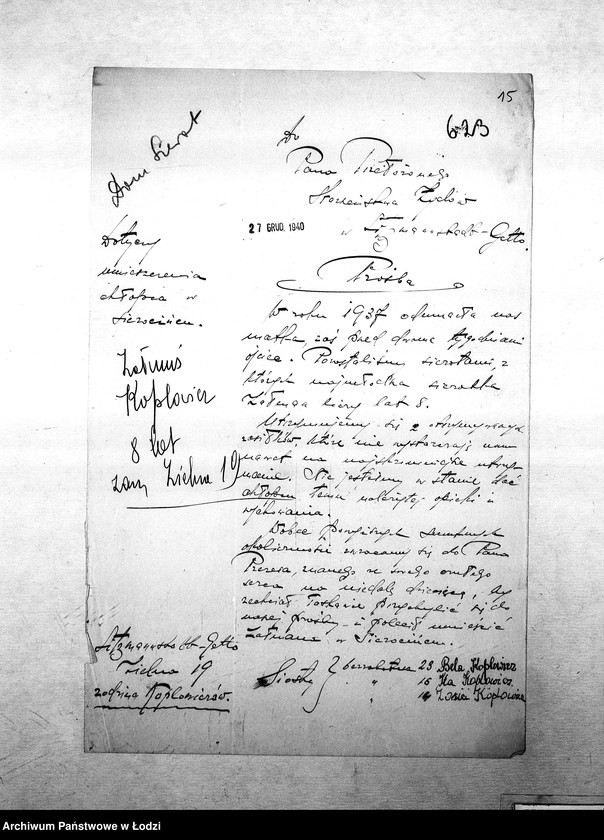 15
6 23
Do
Pana Przełożonego
Starszeństwa Żydów
w Litzmannstadt-Getto.
27 GRUD. 1940
Dom Sierot
Dotyczy
umieszczenia
chłopca w
Sierocińcu.
Załmuś
Kopłowicz
8 lat
zam. Zielna 19
Prośba
W roku 1937 odumarła nas
matka, zaś przed dwoma tygodniami
ojciec. Pozostaliśmy sierotami, z
których najmłodsza sierotka
Załmuga liczy lat 8.
Utrzymujemy się z otrzymywanych
zasiłków, które nie wystarczają nam
nawet na najskromniejsze utrzy-
manie. Nie jesteśmy w stanie dać
chłopcu temu należytej opieki i
wychowania.
Wobec powyższych smutnych
okoliczności zwracamy się do Pana
Prezesa, znanego ze swego czułego
serca na niedolę dziecięcą, by
zechciał łaskawie przychylić się do
naszej prośby i polecił umieścić
Załmana w Sierocińcu.
Litzmannstadt-Getto
Zielna 19
rodzina Kopłowiczów.
Siostry
23 Bela Kopłowicz
" 16 Ita Kopłowicz
" 14 Zosia Kopłowicz
Archiwum Państwowe w Łodzi